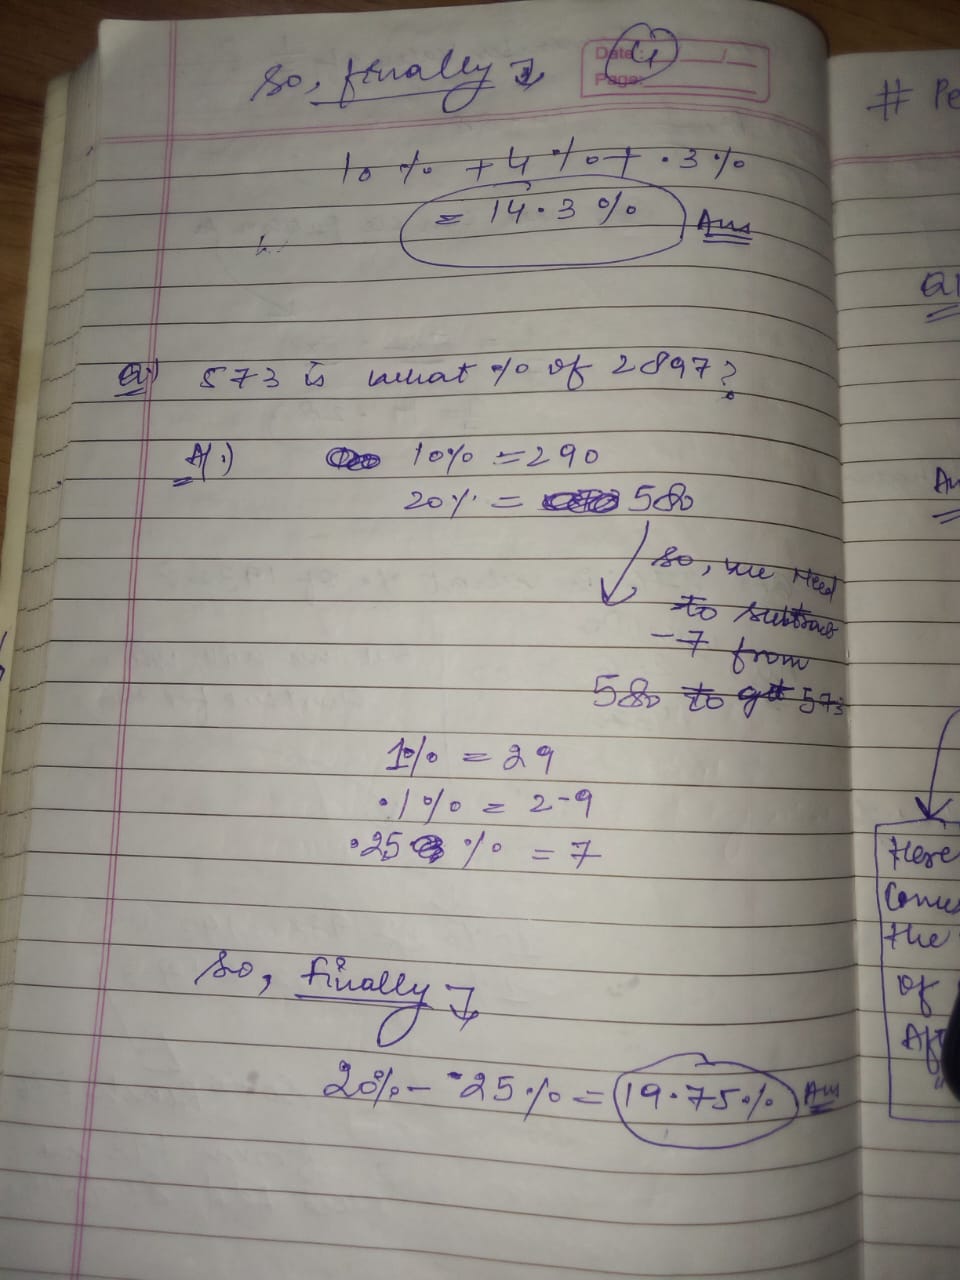 So, finally
4
Date: __/__
Page:
10% + 4% + .3%
= 14.3% Ans
Q) 573 is what % of 2897?
A.) 10% = 290
20% = 580
So, we need
to subtract
-7 from
580 to get 573
1% = 29
.1% = 2-9
.25% = 7
So, finally
20% - .25% = 19.75% Ans
# Pe
Q1
An
Here
Comes
the
of
Aft